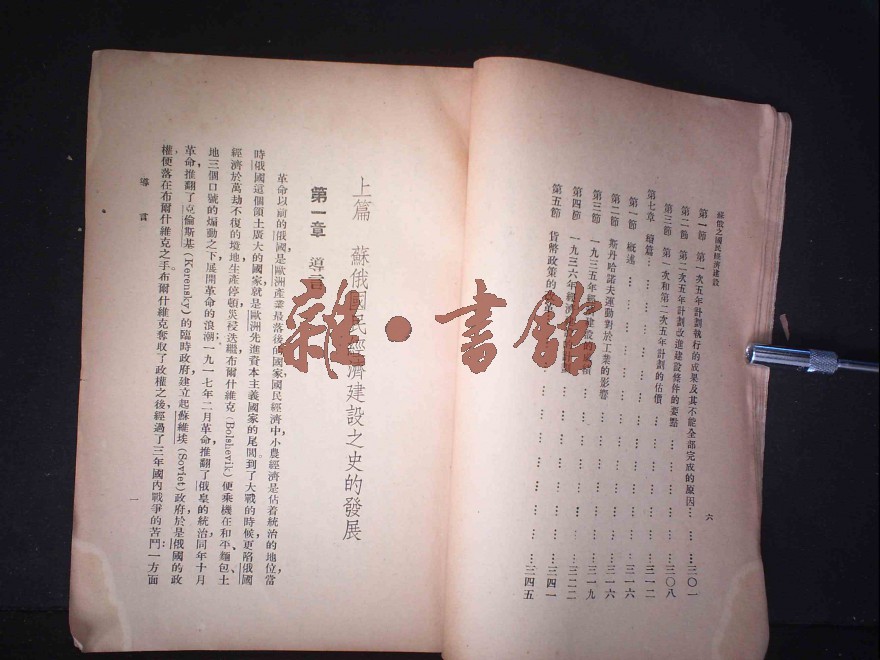 蘇俄之國民經濟建設
六
第一節 第一次五年計劃執行的成果及其不能全部完成的原因…………三〇一
第二節 第二次五年計劃改進建設條件的要點…………三〇八
第三節 第一次和第二次五年計劃的估價…………三一二
第七章 續篇…………三一六
第一節 概述…………三一六
第二節 斯丹哈諾夫運動對於工業的影響…………三一九
第三節 一九三五年經濟建設
第四節 一九三六年經濟…………三四一
第五節 貨幣政策的…………三四五
上篇 蘇俄國民經濟建設之史的發展
第一章 導言
革命以前的俄國是歐洲產業最落後的國家國民經濟中,小農經濟是佔着統治的地位,當
時俄國這個領土廣大的國家,就是歐洲先進資本主義國家的尾閭,到了大戰的時候,更陷俄國
經濟於萬劫不復的境地,生產停頓,災祲迭繼,布爾什維克(Bolshevik)便乘機在和平、麵包、土
地三個口號的煽動之下,展開革命的浪潮,一九一七年二月革命推翻了俄皇的統治,同年十月
革命推翻了克倫斯基(Kerensky)的臨時政府,建立起蘇維埃(Soviet)政府,於是俄國的政
權便落在布爾什維克之手。布爾什維克奪取了政權之後,經過了三年國內戰爭的苦鬥:一方面
導言
一
雜·書館